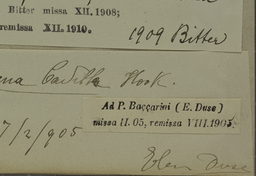 Bitter missa XII. 1908;
remissa XII. 1910.
1909 Bitter
Hook.
Ad P. Baccarini (E. Duse)
missa II. 05, remissa VIII. 1905.
7/2/905
Elen Duse